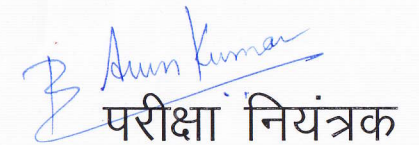 Arun Kumar
परीक्षा नियंत्रक